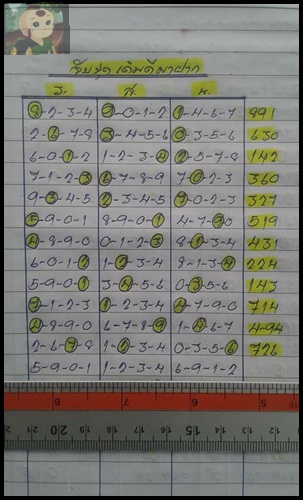 จับชุด เดิมดีมาฝาก
ร. ส. น.
8-2-3-4 9-0-1-2 1-4-6-7 891
2-6-7-8 3-4-5-6 0-3-5-6 630
6-0-1-2 1-2-3-4 2-5-7-8 142
7-1-2-3 6-7-8-9 7-0-2-3 360
9-3-4-5 2-3-4-5 7-0-2-3 327
5-9-0-1 8-9-0-1 4-7-9-0 519
4-8-9-0 0-1-2-3 8-1-3-4 431
6-0-1-2 1-2-3-4 8-1-3-4 224
5-9-0-1 3-4-5-6 0-3-5-6 143
7-1-2-3 1-2-3-4 4-7-9-0 714
4-8-9-0 6-7-8-9 1-4-6-7 494
2-6-7-8 1-2-3-4 0-3-5-6 726
5-9-0-1 1-2-3-4 6-9-1-2
8 7 6 5
21 20 19 18 17 16 15 14 13 12